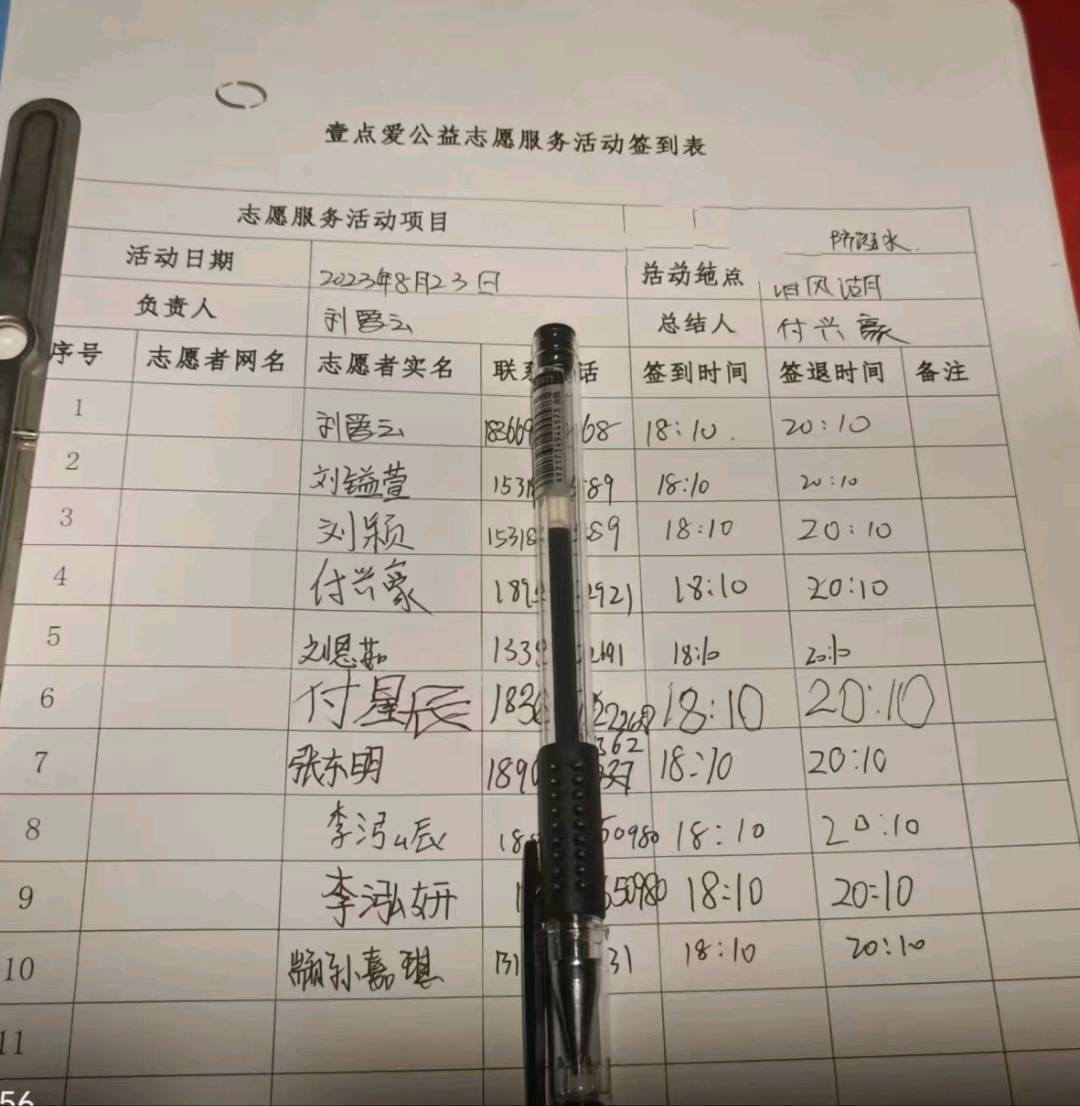 壹点爱公益志愿服务活动签到表
志愿服务活动项目 防溺水
活动日期 2023年8月23日 活动地点 风湖
负责人 刘云 总结人 付兴豪
序号 志愿者网名 志愿者实名 联系 话 签到时间 签退时间 备注
1 刘云 18366 68 18:10 20:10
2 刘镒萱 1531 89 18:10 20:10
3 刘颖 15318 89 18:10 20:10
4 付兴豪 189 2921 18:10 20:10
5 刘恩茹 133 2691 18:10 20:10
6 付星辰 183 18:10 20:10
7 张东明 1890 18:10 20:10
8 李泓辰 18 50980 18:10 20:10
9 李泓妍 1 50980 18:10 20:10
10 颛孙嘉琪 131 31 18:10 20:10
11
56